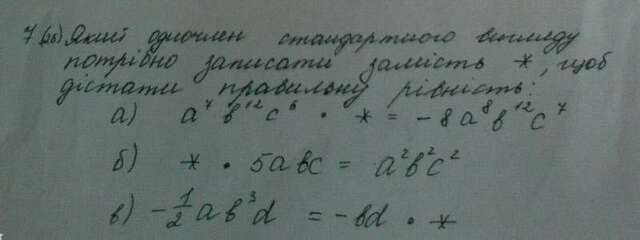 7(2б) Який одночлен стандартного вигляду
потрібно записати замість *, щоб
дістати правильну рівність:
а) a⁷b¹²c⁶ · * = -8a⁸b¹²c⁷
б) * · 5abc = a²b²c²
в) -1/2ab³d = -bd · *